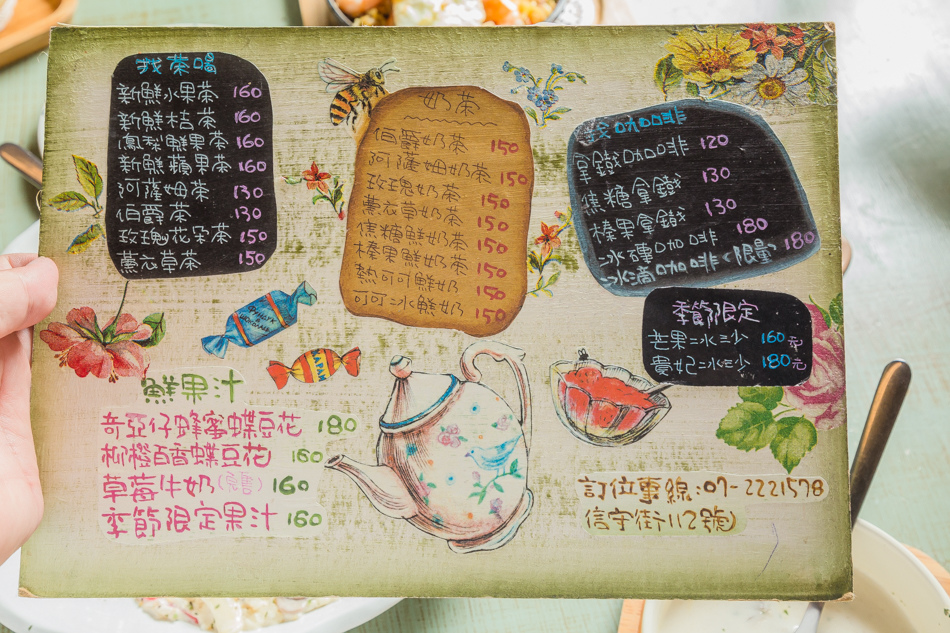 找茶喝
新鮮水果茶 160
新鮮桔茶 160
鳳梨鮮果茶 160
新鮮蘋果茶 160
阿薩姆茶 130
伯爵茶 130
玫瑰花朵茶 150
薰衣草茶 150
奶茶
伯爵奶茶 150
阿薩姆奶茶 150
玫瑰奶茶 150
薰衣草奶茶 150
焦糖鮮奶茶 150
榛果鮮奶茶 150
熱可可鮮奶 150
可可冰鮮奶 150
咖啡
拿鐵咖啡 120
焦糖拿鐵 130
榛果拿鐵 130
冰磚咖啡 180
冰滴咖啡<限量> 180
季節限定
芒果冰沙 160起
貴妃冰沙 180元
鮮果汁
奇亞仔蜂蜜蝶豆花 180
柳橙百香蝶豆花 160
草莓牛奶 160
季節限定果汁 160
訂位專線:07-2221578
信守街112號